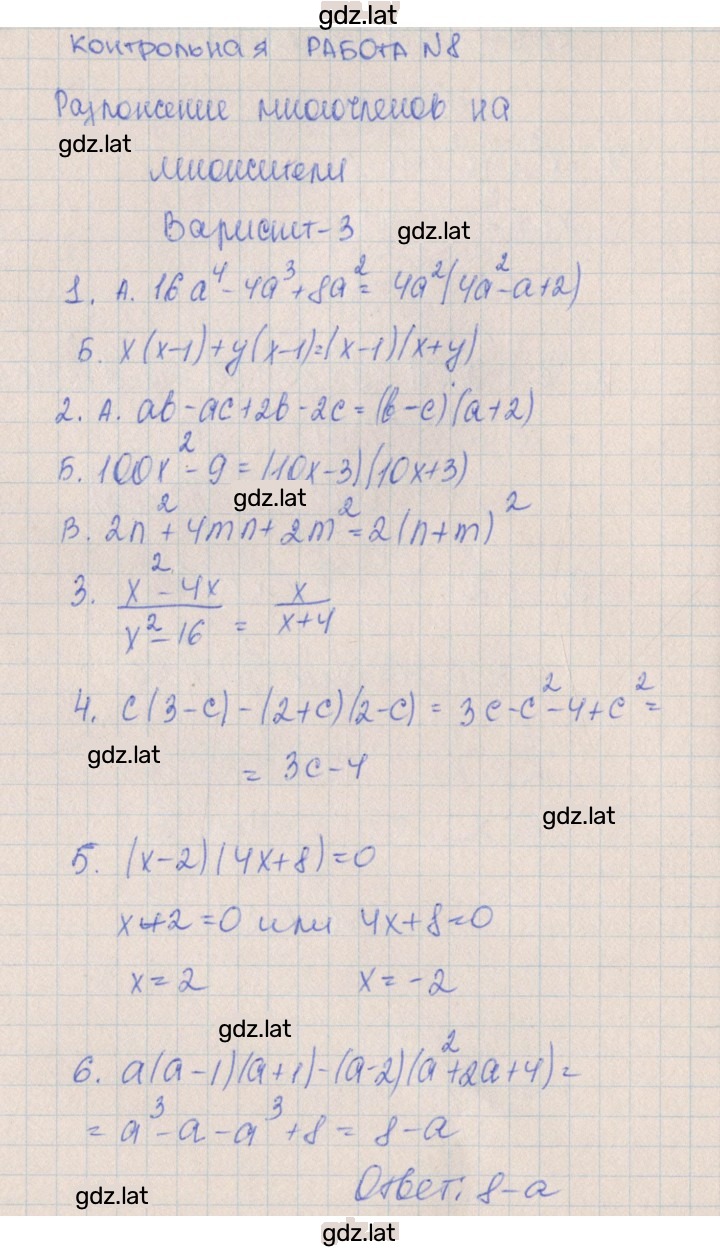 gdz.lat
контрольная РАБОТА N8
Разложение многочленов на
gdz.lat
множители
Вариант-3 gdz.lat
1. А. 16a⁴-4a³+8a²= 4a²(4a²-a+2)
Б. x(x-1)+y(x-1)=(x-1)(x+y)
2. А. ab-ac+2b-2c=(b-c)(a+2)
Б. 100x²-9=(10x-3)(10x+3)
gdz.lat
В. 2n²+4mn+2m²=2(n+m)²
3. (x²-4x)/(x²-16) = x/(x+4)
4. c(3-c)-(2+c)(2-c)= 3c-c²-4+c²=
gdz.lat
= 3c-4
gdz.lat
5. (x-2)(4x+8)=0
x-2=0 или 4x+8=0
x=2 x=-2
gdz.lat
6. a(a-1)(a+1)-(a-2)(a²+2a+4)=
=a³-a-a³+8= 8-a
gdz.lat Ответ: 8-a
gdz.lat